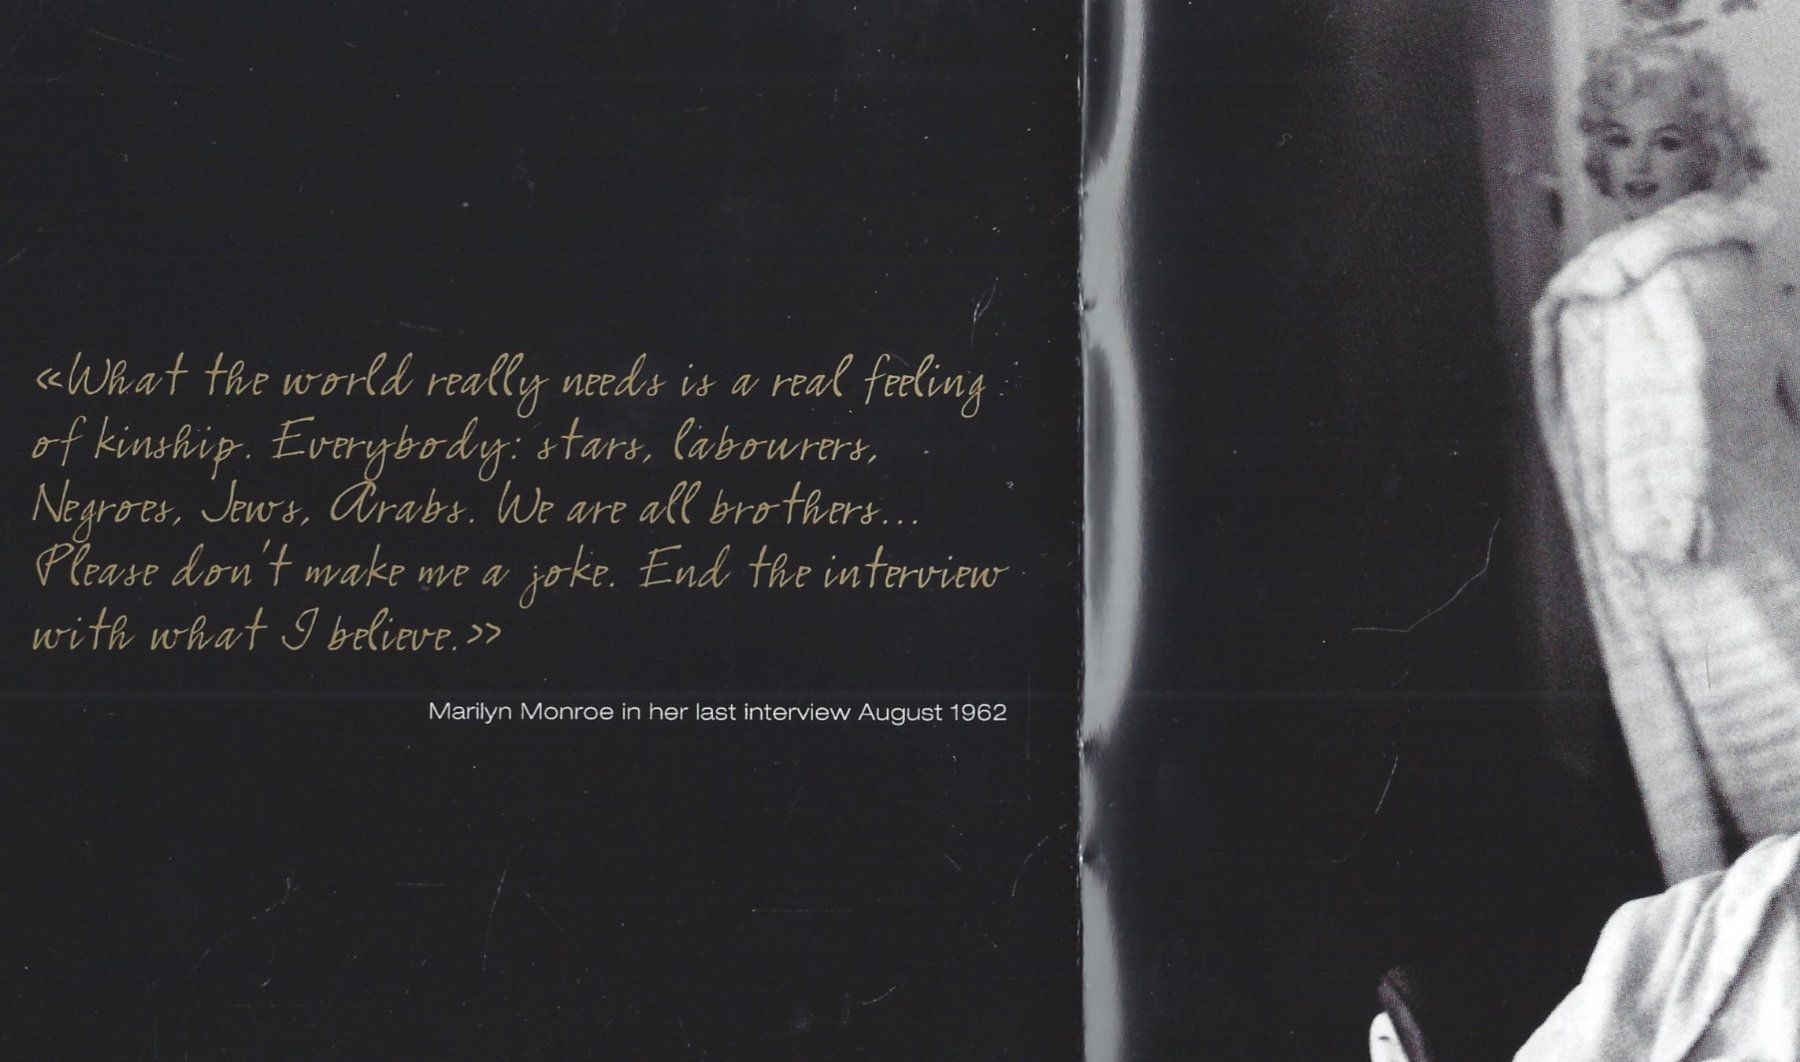 «What the world really needs is a real feeling
of kinship. Everybody: stars, labourers,
Negroes, Jews, Arabs. We are all brothers...
Please don't make me a joke. End the interview
with what I believe.>>
Marilyn Monroe in her last interview August 1962